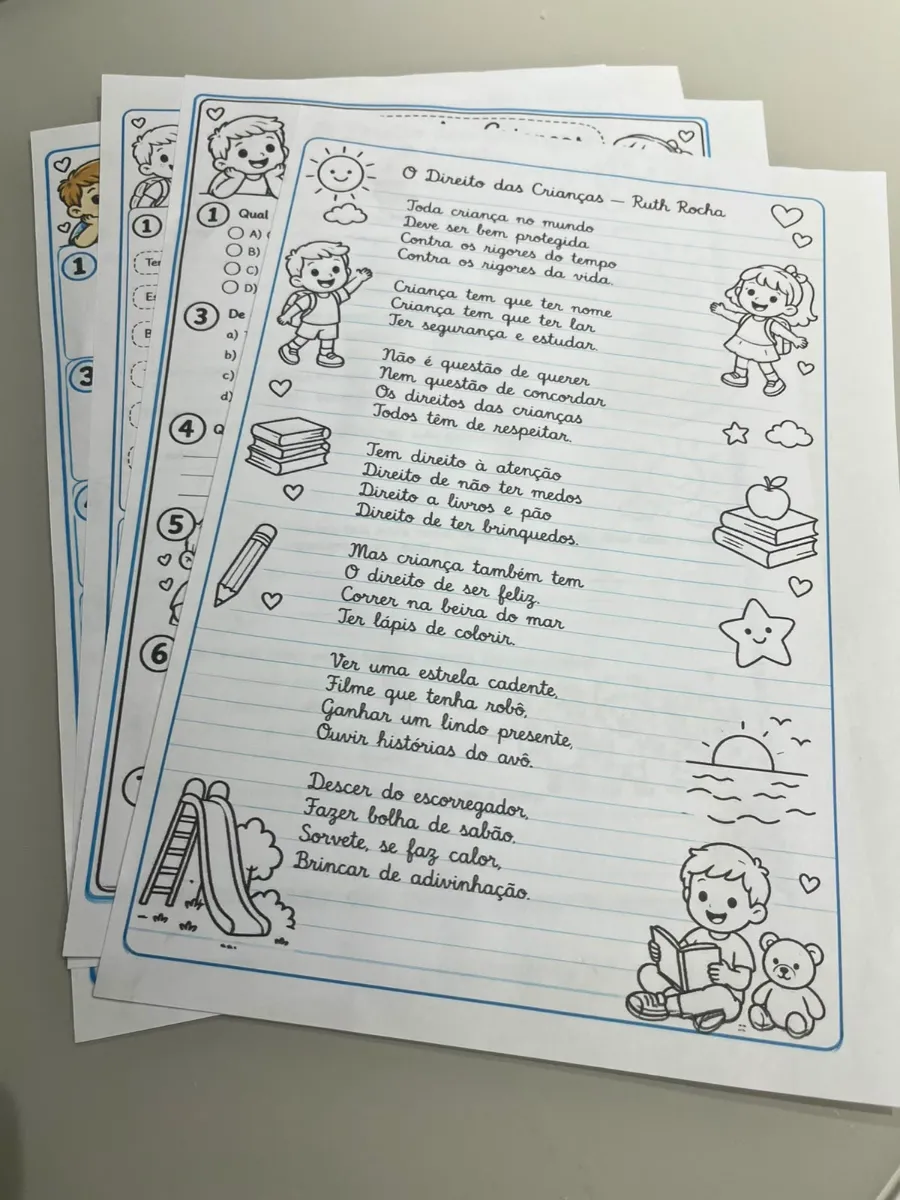 O Direito das Crianças — Ruth Rocha
Toda criança no mundo
Deve ser bem protegida
Contra os rigores do tempo
Contra os rigores da vida.
Criança tem que ter nome
Criança tem que ter lar
Ter segurança e estudar.
Não é questão de querer
Nem questão de concordar
Os direitos das crianças
Todos têm de respeitar.
Tem direito à atenção
Direito de não ter medos
Direito a livros e pão
Direito de ter brinquedos.
Mas criança também tem
O direito de ser feliz.
Correr na beira do mar
Ter lápis de colorir.
Ver uma estrela cadente,
Filme que tenha robô,
Ganhar um lindo presente,
Ouvir histórias do avô.
Descer do escorregador,
Fazer bolha de sabão,
Sorvete, se faz calor,
Brincar de adivinhação.
1 Qual
A)
B)
C)
D)
3 De
a)
b)
c)
d)
4 Q
5
6
1
1
3